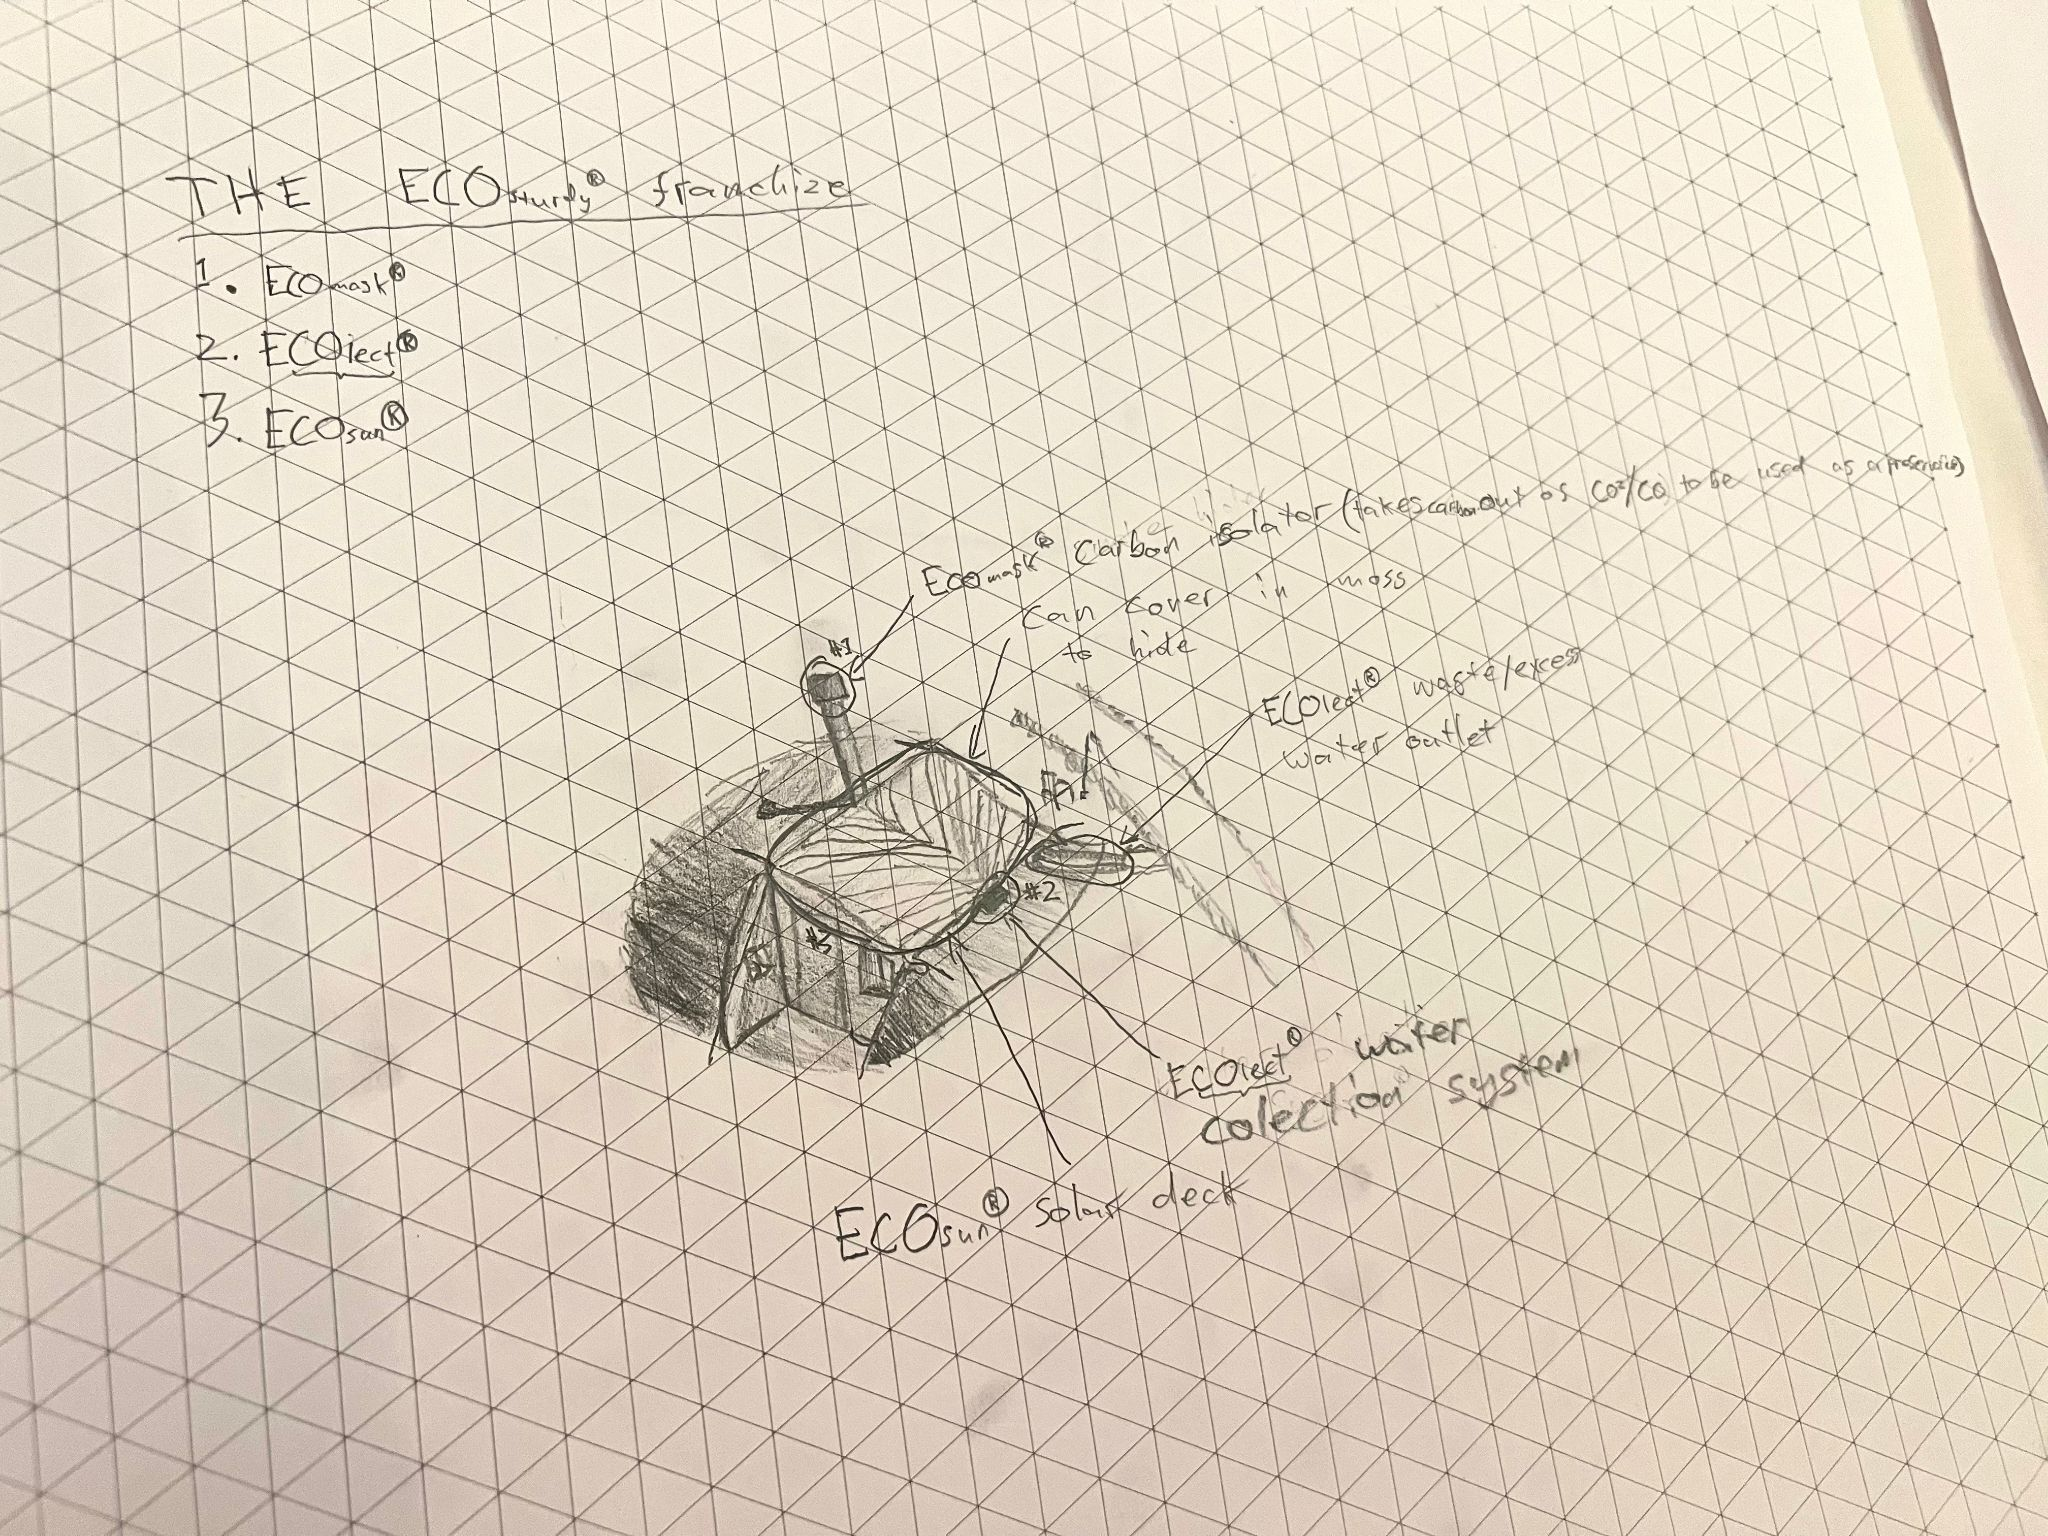 THE ECOsturdy® franchize
1. ECOmask®
2. ECOlect®
3. ECOsun®
ECOmask® Carbon isolator (takes carbon out of CO²/CO to be used as a
can cover in moss
to hide
#1
ECOlect® waste/excess
water outlet
#2
#3
ECOlect® water
colection system
ECOsun® solar deck